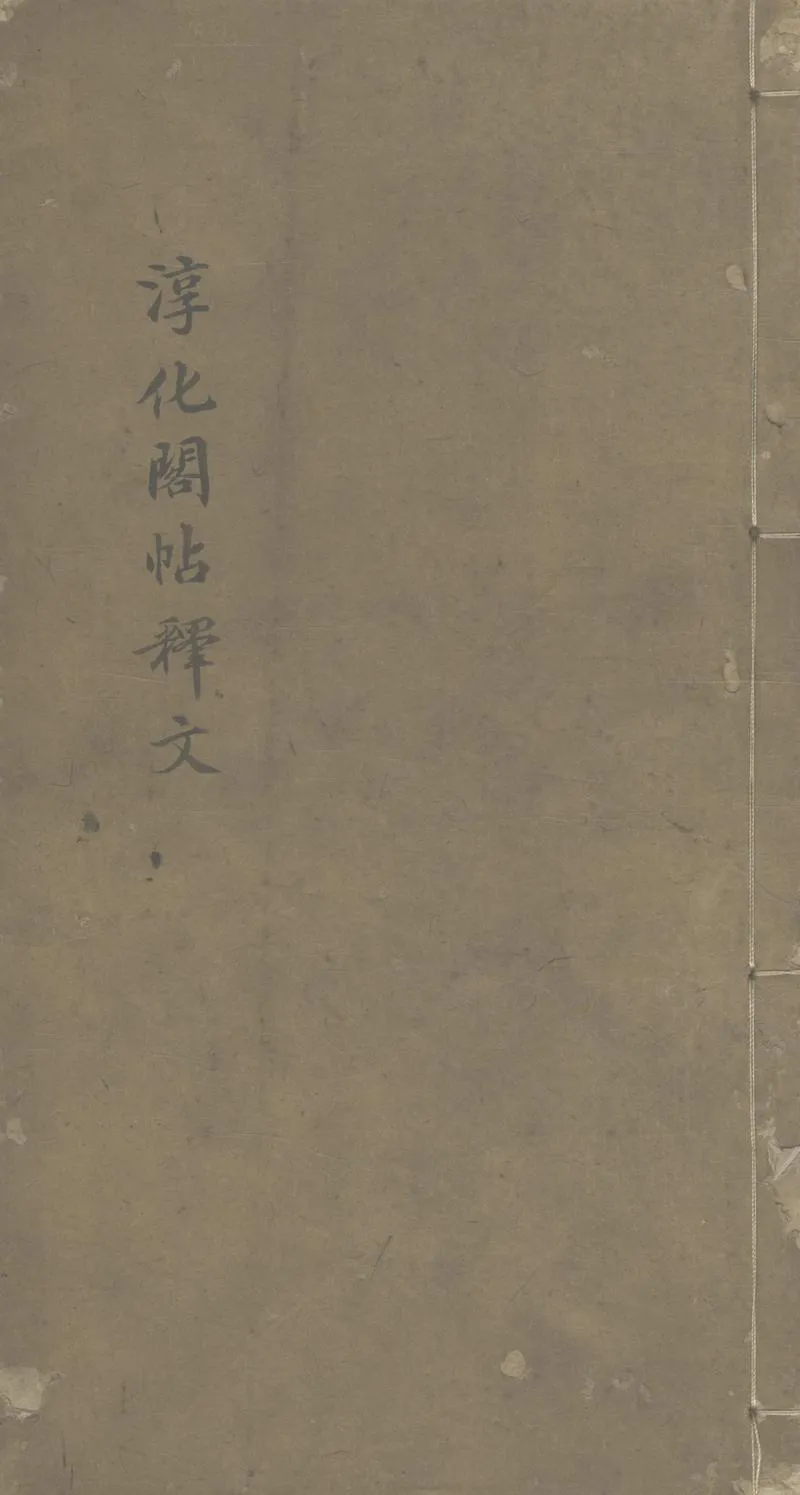 淳化閣帖釋文